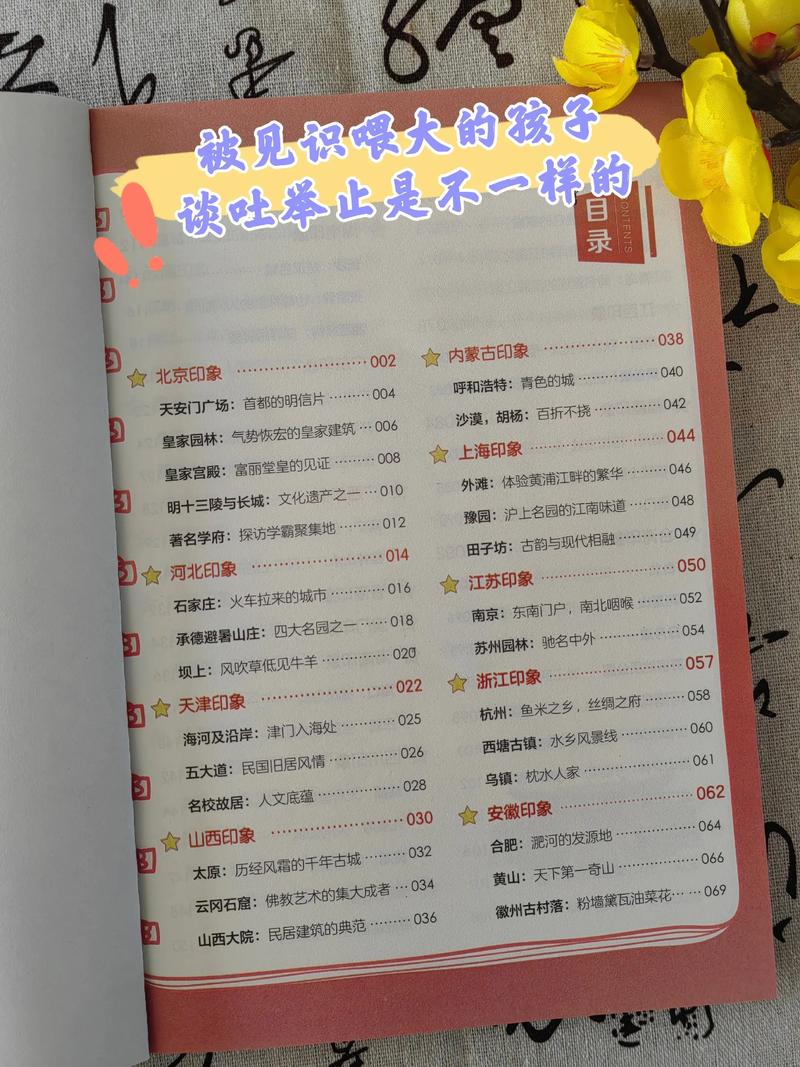 被见识喂大的孩子
谈吐举止是不一样的
目录
CONTENTS
北京印象 ………………… 002
天安门广场：首都的明信片 ……… 004
皇家园林：气势恢宏的皇家建筑 … 006
皇家宫殿：富丽堂皇的见证 ……… 008
明十三陵与长城：文化遗产之一 … 010
著名学府：探访学霸聚集地 ……… 012
河北印象 ………………… 014
石家庄：火车拉来的城市 ………… 016
承德避暑山庄：四大名园之一 …… 018
坝上：风吹草低见牛羊 …………… 020
天津印象 ………………… 022
海河及沿岸：津门入海处 ………… 025
五大道：民国旧居风情 …………… 026
名校故居：人文底蕴 ……………… 028
山西印象 ………………… 030
太原：历经风霜的千年古城 ……… 032
云冈石窟：佛教艺术的集大成者 … 034
山西大院：民居建筑的典范 ……… 036
内蒙古印象 ……………… 038
呼和浩特：青色的城 ……………… 040
沙漠，胡杨：百折不挠 …………… 042
上海印象 ………………… 044
外滩：体验黄浦江畔的繁华 ……… 046
豫园：沪上名园的江南味道 ……… 048
田子坊：古韵与现代相融 ………… 049
江苏印象 ………………… 050
南京：东南门户，南北咽喉 ……… 052
苏州园林：驰名中外 ……………… 054
浙江印象 ………………… 057
杭州：鱼米之乡，丝绸之府 ……… 058
西塘古镇：水乡风景线 …………… 060
乌镇：枕水人家 …………………… 061
安徽印象 ………………… 062
合肥：淝河的发源地 ……………… 064
黄山：天下第一奇山 ……………… 066
徽州古村落：粉墙黛瓦油菜花… … 069